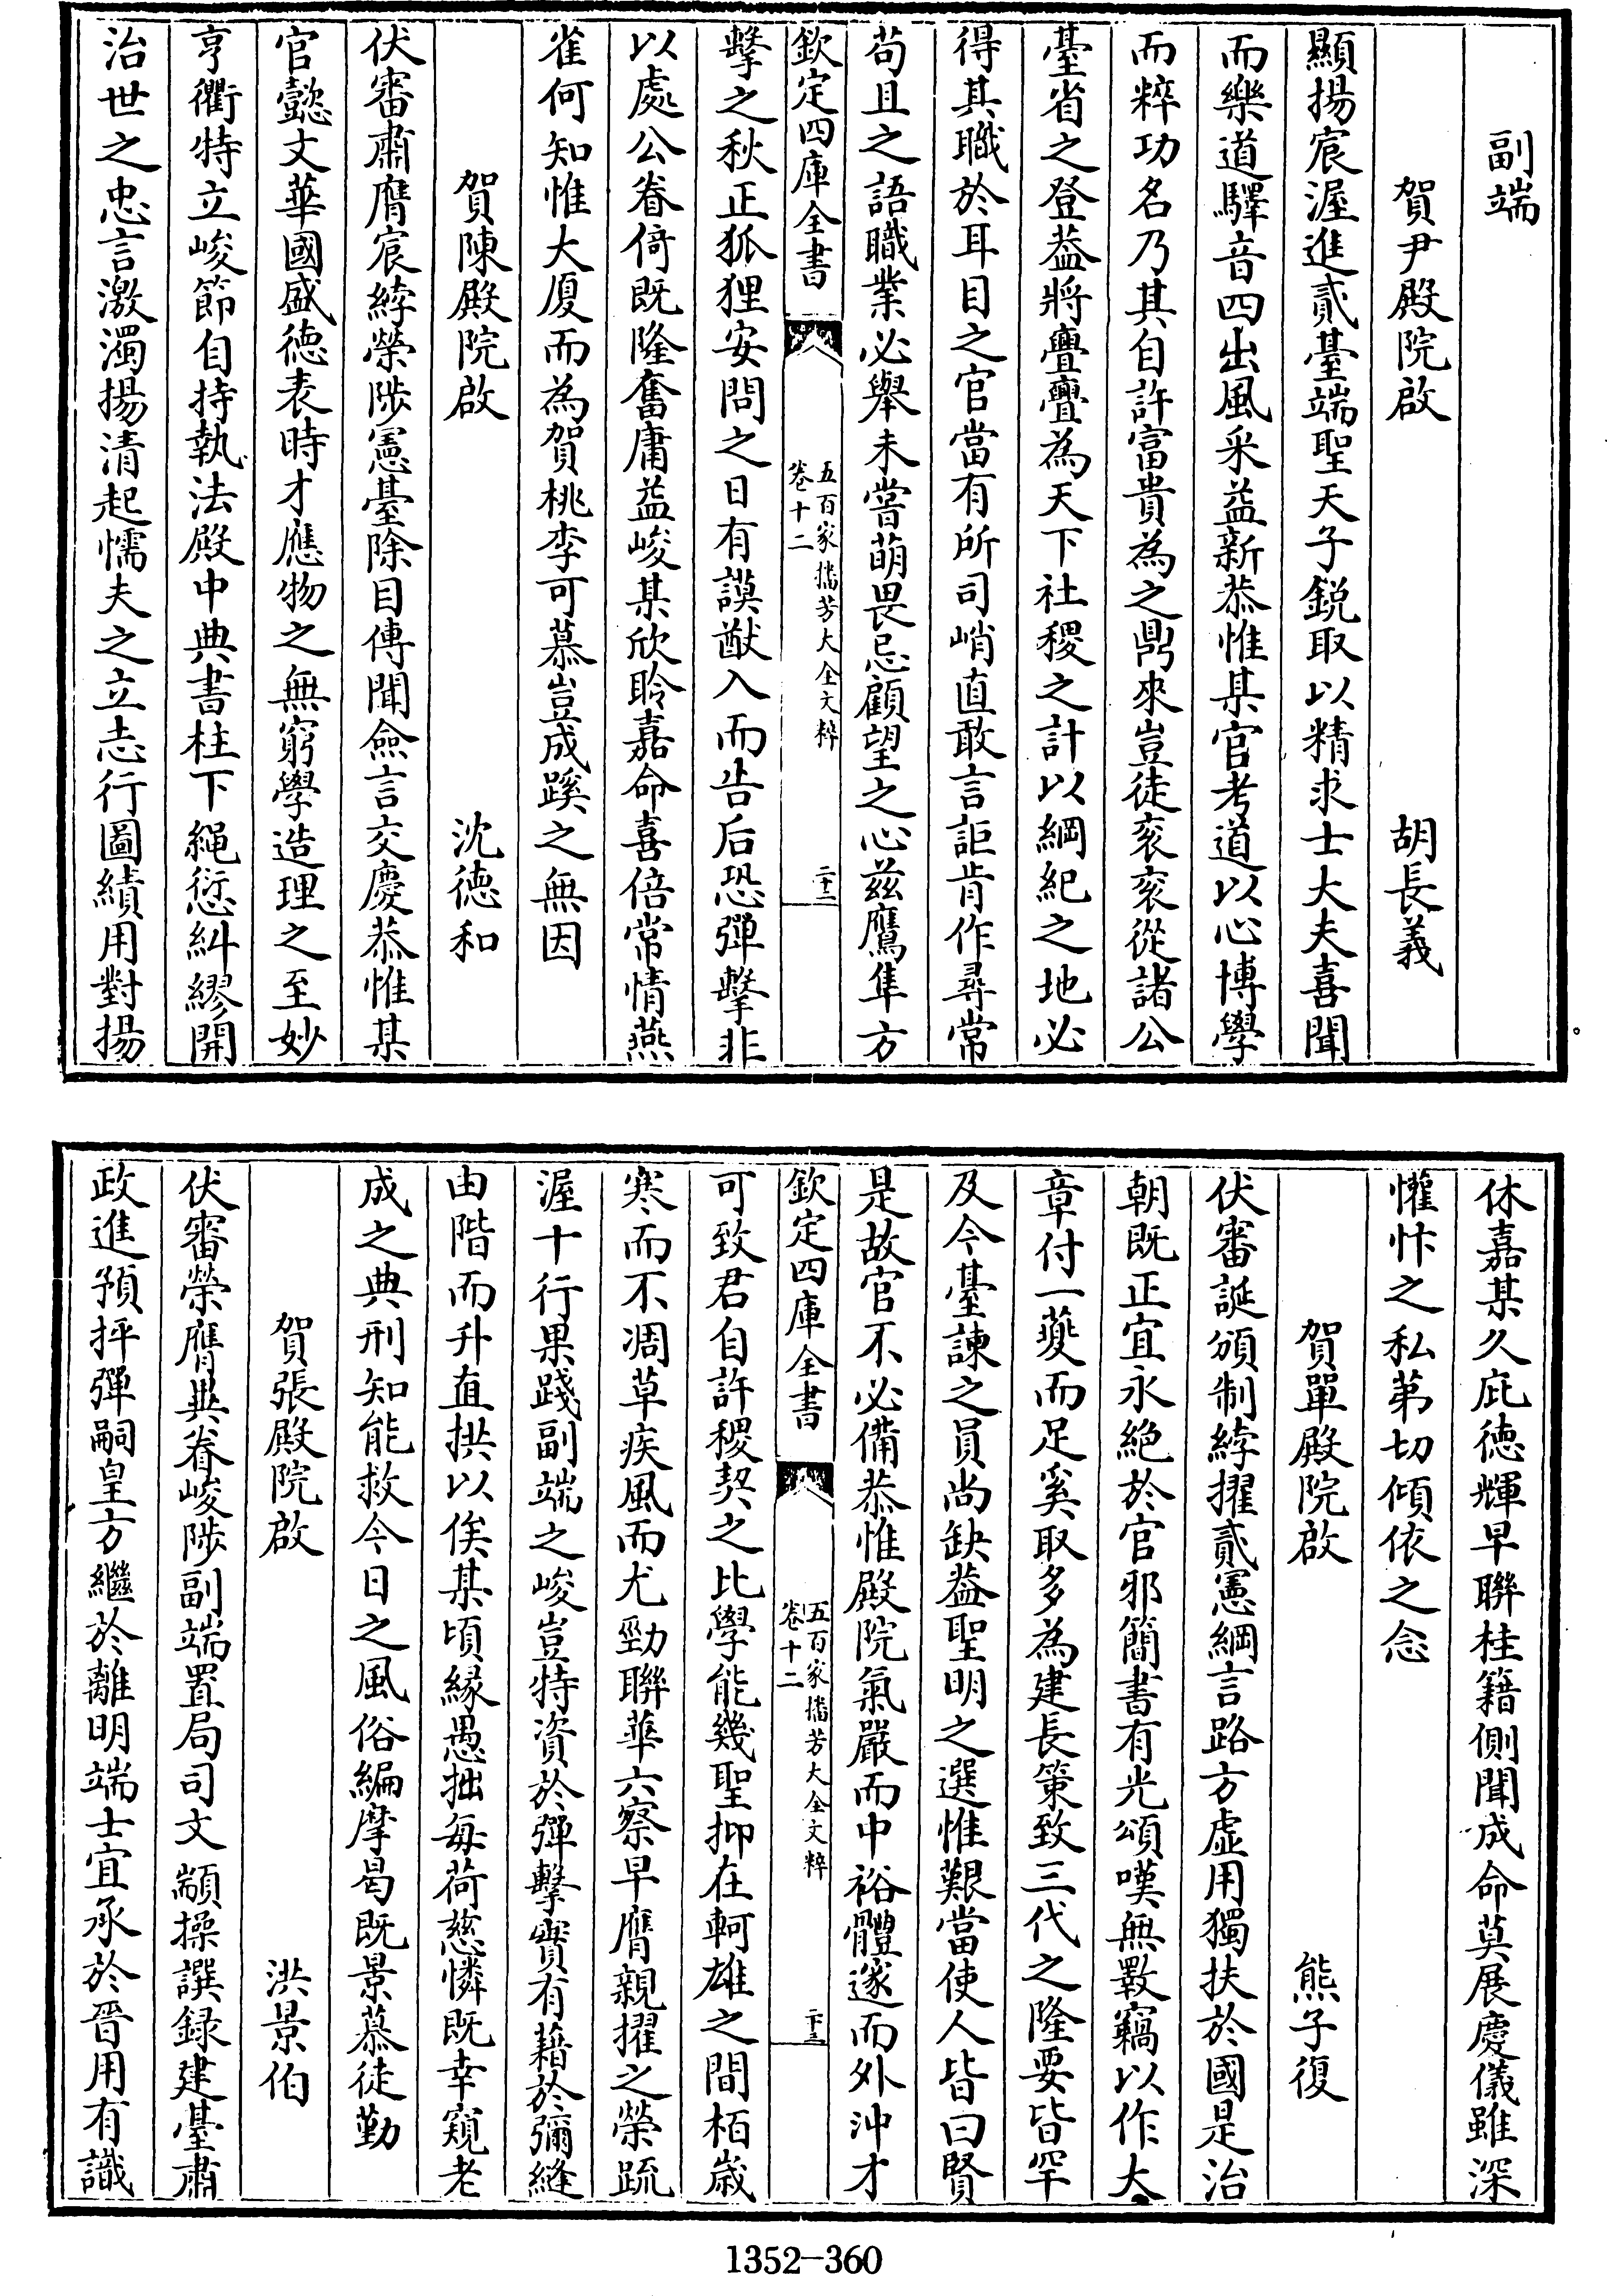 副端
賀尹殿院啟　胡長義
顯揚宸渥進貳臺端聖天子銳取以精求士大夫喜聞
而樂道驛音四出風采益新恭惟某官考道以心博學
而粹功名乃其自許富貴為之鼎來豈徒衮衮從諸公
臺省之登葢將亹亹為天下社稷之計以綱紀之地必
得其職於耳目之官當有所司峭直敢言詎肯作尋常
苟且之語職業必舉未嘗萌畏忌顧望之心兹鷹隼方
欽定四庫全書
五百家播芳大全文粹
卷十二
二十二
擊之秋正狐狸安問之日有謨猷入而告后恐彈擊非
以處公眷倚既隆奮庸益峻某欣聆嘉命喜倍常情燕
雀何知惟大厦而為賀桃李可慕豈成蹊之無因
賀陳殿院啟　沈徳和
伏審肅膺宸綍榮陟憲臺除目傳聞僉言交慶恭惟某
官懿文華國盛徳表時才應物之無窮學造理之至妙
亨衢特立峻節自持執法殿中典書柱下繩愆糾繆開
治世之忠言激濁揚清起懦夫之立志行圖績用對揚
休嘉某久庇徳輝早聯桂籍側聞成命莫展慶儀雖深
懽忭之私第切傾依之念
賀單殿院啟　熊子復
伏審誕頒制綍擢貳憲綱言路方虛用獨扶於國是治
朝既正宜永絶於官邪簡書有光頌嘆無斁竊以作大
章付一夔而足奚取多為建長策致三代之隆要皆罕
及今臺諫之員尚缺葢聖明之選惟艱當使人皆曰賢
是故官不必備恭惟殿院氣嚴而中裕體邃而外沖才
欽定四庫全書
五百家播芳大全文粹
卷十二
二十三
可致君自許稷契之比學能幾聖抑在軻雄之間栢歲
寒而不凋草疾風而尤勁聯華六察早膺親擢之榮䟽
渥十行果踐副端之峻豈特資於彈擊實有藉於彌縫
由階而升直拱以俟某頃縁愚拙每荷慈憐既幸窺老
成之典刑知能救今日之風俗編摩曷既景慕徒勤
賀張殿院啟　洪景伯
伏審榮膺典眷峻陟副端置局司文顓操譔録建臺肅
政進預抨彈嗣皇方繼於離明端士宜承於晉用有識
1352-360